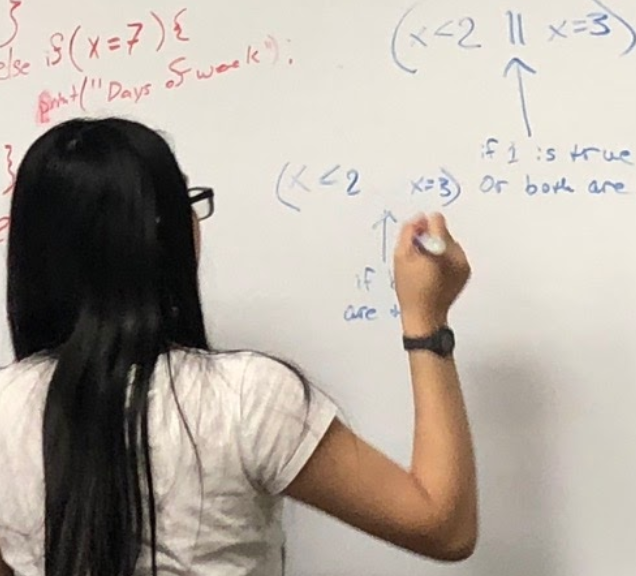 }
else if (x=7) {
print("Days of week");
}
(x<2 || x=3)
if 1 is true
Or both are
(x<2 x=3)
if
are